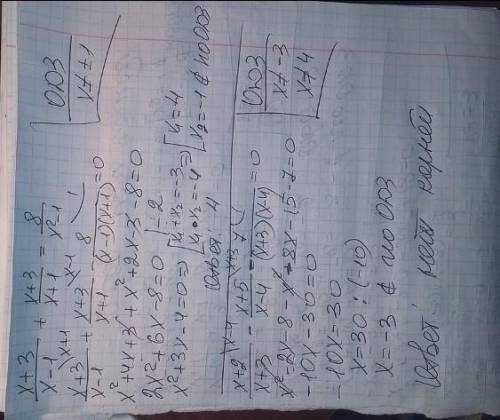 x+3/x-1 + x+3/x+1 = 8/x²-1 | ОДЗ x≠±1
x+3/x-1 (x+1 + x+3/x+1 (x-1 - 8/(x-1)(x+1) (1 = 0
x²+4x+3+x²+2x-3-8=0
2x²+6x-8=0 |:2
x²+3x-4=0 ⇒ [x₁+x₂=-3 x₁·x₂=-4 ⇒ [x₁=4 x₂=-1 ∉ по ОДЗ
Ответ: 4
x+2/x+3 (x-4 - x+5/x-4 (x+3 - 7/(x+3)(x-4) = 0 | ОДЗ x≠-3 x≠4
x²-2x-8-x²-8x-15-7=0
-10x-30=0
-10x=30
x=30:(-10)
x=-3 ∉ по ОДЗ
Ответ: нет корней